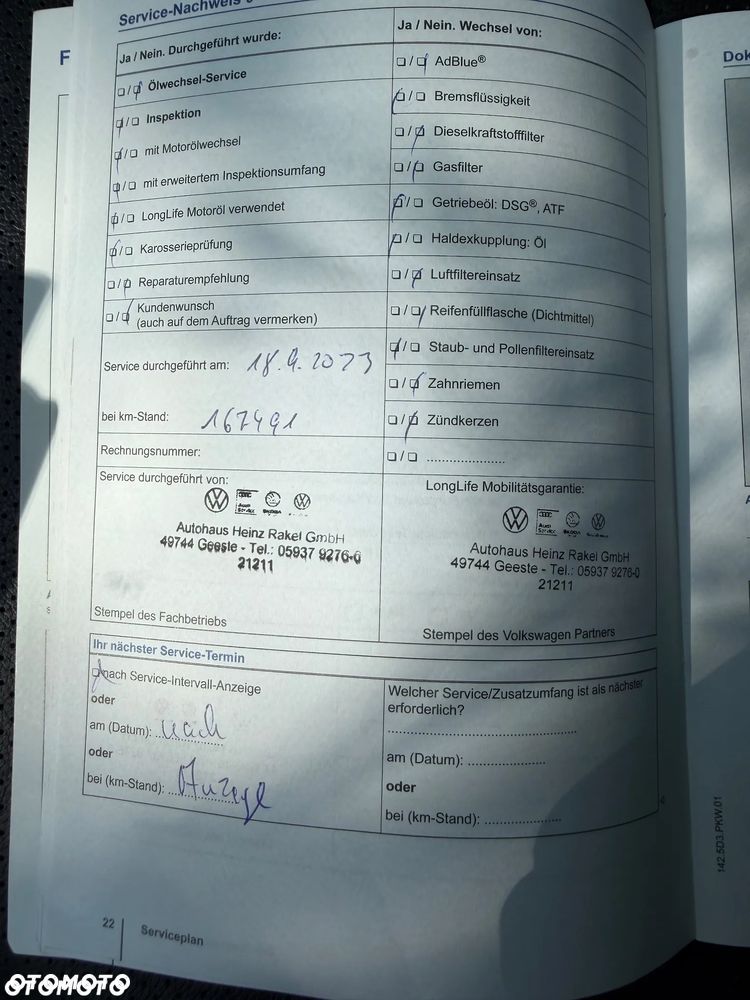 Service-Nachweis
Ja / Nein. Durchgeführt wurde:
☐/☑ Ölwechsel-Service
☑/☐ Inspektion
☑/☐ mit Motorölwechsel
☑/☐ mit erweitertem Inspektionsumfang
☑/☐ LongLife Motoröl verwendet
☑/☐ Karosserieprüfung
☐/☑ Reparaturempfehlung
☐/☑ Kundenwunsch
(auch auf dem Auftrag vermerken)
Service durchgeführt am: 18.9.2023
bei km-Stand: 167491
Rechnungsnummer:
Service durchgeführt von:
Audi Service
ŠKODA
Autohaus Heinz Rakel GmbH
49744 Geeste - Tel.: 05937 9276-0
21211
Stempel des Fachbetriebs
Ja / Nein. Wechsel von:
☐/☑ AdBlue®
☑/☐ Bremsflüssigkeit
☐/☑ Dieselkraftstofffilter
☐/☑ Gasfilter
☑/☐ Getriebeöl: DSG®, ATF
☑/☐ Haldexkupplung: Öl
☐/☑ Luftfiltereinsatz
☐/☑ Reifenfüllflasche (Dichtmittel)
☑/☐ Staub- und Pollenfiltereinsatz
☐/☑ Zahnriemen
☐/☑ Zündkerzen
☐/☐ ......................
LongLife Mobilitätsgarantie:
Audi Service
ŠKODA
Autohaus Heinz Rakel GmbH
49744 Geeste - Tel.: 05937 9276-0
21211
Stempel des Volkswagen Partners
Ihr nächster Service-Termin
☑ nach Service-Intervall-Anzeige
oder
am (Datum): nach
oder
bei (km-Stand): Anzeige
Welcher Service/Zusatzumfang ist als nächster
erforderlich?
......................................................
am (Datum): ......................
oder
bei (km-Stand): ......................
142.5D3.PKW.01
22
Serviceplan
F
Dok
OTOMOTO